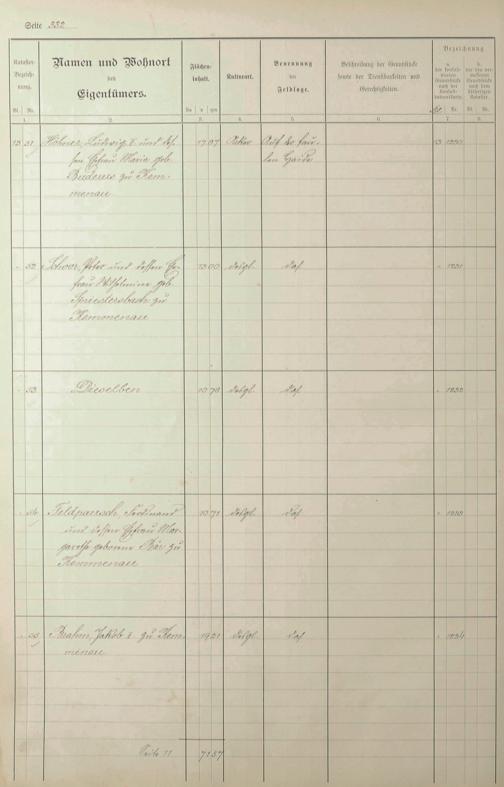 Seite 332
Kataster-
Bezeich-
nung.
Bl. Nr.
Namen und Wohnort
des
Eigentümers.
Flächen-
inhalt.
ha a qm
Kulturart.
Benennung
der
Feldlage.
Beschreibung der Grundstücke
sowie der Dienstbarkeiten und
Gerechtigkeiten.
Bezeichnung
a.
der konsoli-
dierten
Grundstücke
nach der
Konsoli-
dationskarte.
b.
der
Grundstücke
nach dem
bisherigen
Kataster.
1. 2. 3. 4. 5. 6. 7. 8.
13 51 Höhner, Ludwig 2. und des-
sen Ehefrau Marie geb.
Buderus zu Kem-
menau
13 07 Acker Auf der
Haide
13 1230
" 52 Peter und dessen Ehe-
frau Wilhelmine geb.
Spriestersbach zu
Kemmenau
13 00 desgl. das. " 1231
" 53 Dieselben 10 78 desgl. das. " 1232
" 54 Feldpausch, Ferdinand
und dessen Ehefrau Mar-
garethe geborene Bär zu
Kemmenau
10 71 desgl. das. " 1233
" 55 Jakob 2. zu Kem-
menau
19 21 desgl. das. " 1234
Seite 11 71 57